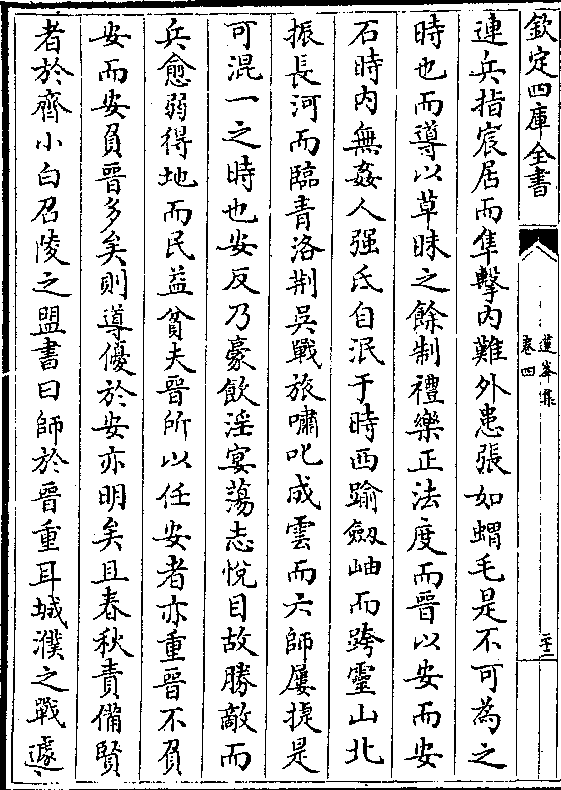 欽定四庫全書
蓮峯集
卷四
連兵指宸居而隼擊内難外患張如蝟毛是不可為之
時也而導以草昧之餘制禮樂正法度而晉以安而安
石時内無姦人强氐自泯于時西踰劔岫而跨靈山北
振長河而臨青洛荆吳戰旅嘯叱成雲而六師屢捷是
可混一之時也安反乃豪飲淫宴蕩志悅目故勝敵而
兵愈弱得地而民益貧夫晉所以任安者亦重晉不負
安而安負晉多矣則導優於安亦明矣且春秋責備賢
者於齊小白召陵之盟書曰師於晉重耳城濮之戰遽